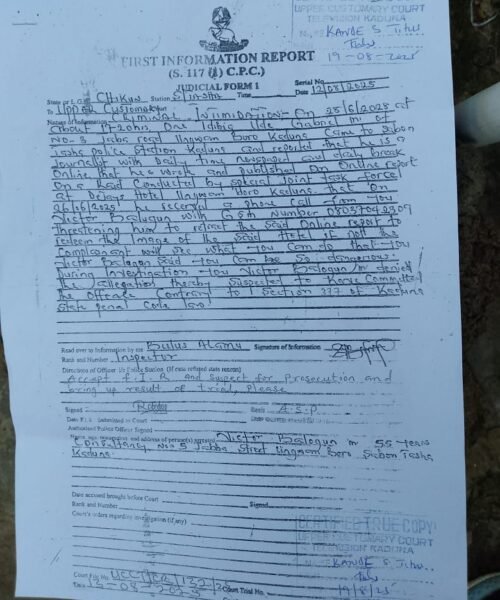 UPPER CUSTOMARY COURT
TELEVISION KADUNA
KANDE S. Titus
19-08-2025
FIRST INFORMATION REPORT
(S. 117 C.P.C.)
JUDICIAL FORM 1
Serial No
State or L.G.A Chikun Station S/Tasha Time Date 12/08/2025
Upper Customary
Nature of Information Criminal Intimidation On 25/6/2025 at
about 1720hrs, One Idibia Ude Gabriel 'm' of
No-3 Jaba road Ungwan Boro Kaduna Came to Sabon
Tasha police Station Kaduna and reported that he is a
Journalist with Daily time newspaper and daily break
Online that he wrote and published On Online report
On a Raid Conducted by special Joint task force
at Dejays Hotel Ungwan Boro Kaduna. that On
24/6/2025 he received a phone call from you
Victor Balogun with GSM Number 08037042309
threatening him to retract the said Online report to
redeem the Image of the said Hotel if not the
Complainant will see what you Can do that you
Victor Balogun said you Can be So dangerous.
During Investigation you Victor Balogun 'm' denied
the allegation thereby Suspected to have Committed
the Offence Contrary to Section 377 of Kaduna
State penal Code law
Read over to Information by me Bulus Alamu Signature of Information
Rank and Number Inspector
Directions of Officer i/c Police Station (If case refused state reason)
Accept F.I.R and Suspect for Prosecution and
bring up result of trial, please
Signed Rank A.S.P
Date F.I.R. Submitted to Court
Authorised Police Officer Signed
Name, age, occupation, and address of person(s) arrested Victor Balogun 'm' 55 years
Consultancy No 5 Jabba Street Ungwan Boro Sabon Tasha
Kaduna.
Date accused brought before Court
Rank and Number Signed
Court's orders regarding investigation (if any)
CERTIFIED TRUE COPY
UPPER CUSTOMARY COURT
TELEVISION KADUNA
KANDE S. Titus
19/8/25
Court File No Court Trial No.
Date